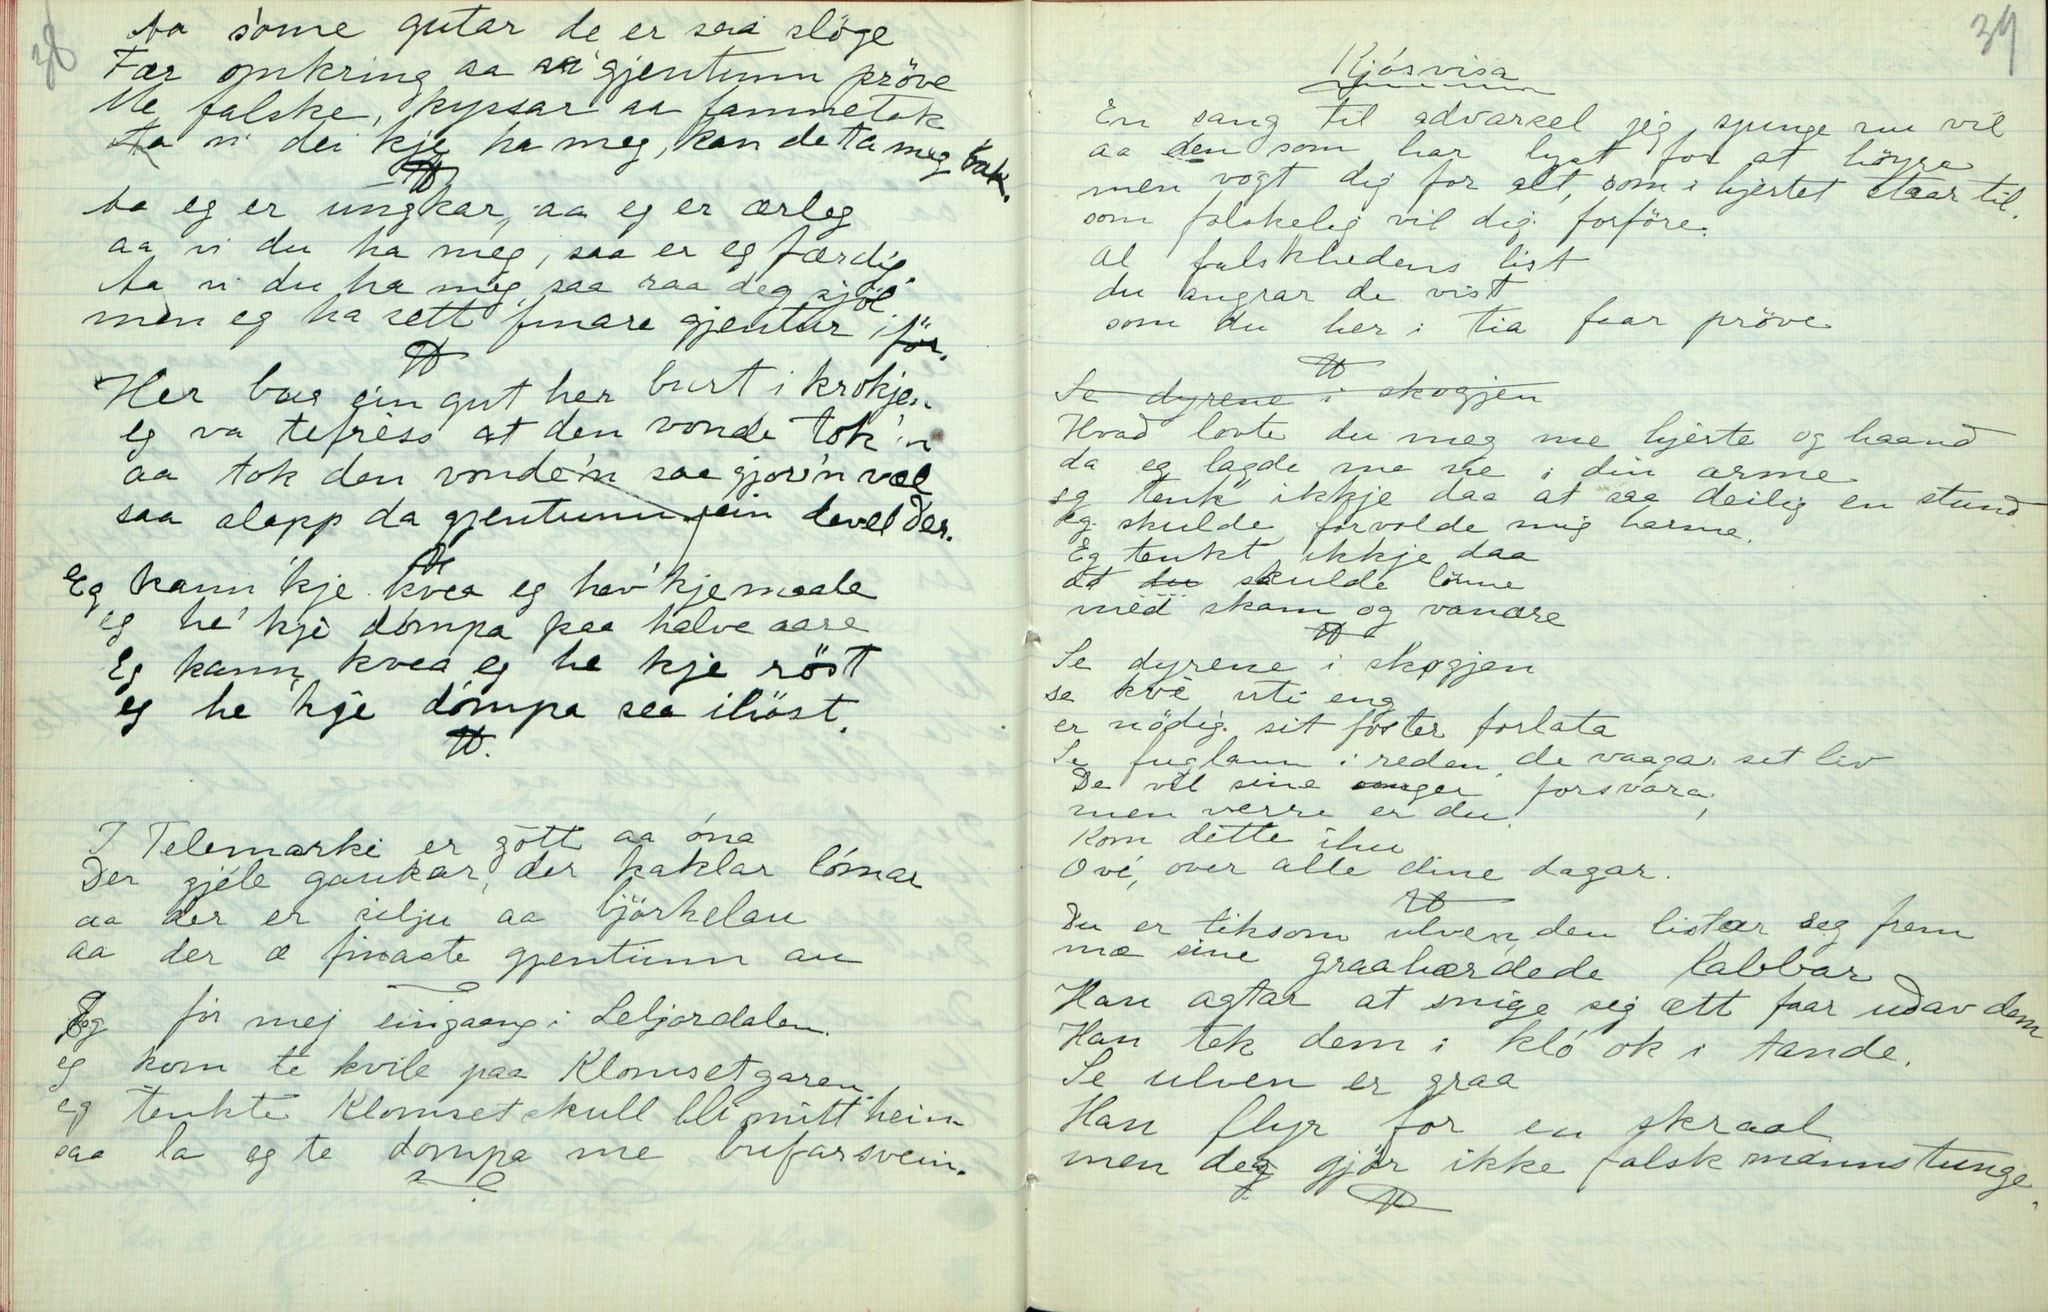 38
Aa some gutar de er saa slöge
Fær omkring aa gjentunn pröve
Me falske, kyssar aa fammetak
Aa vi dei kje ha meg, kan de ta meg bak.
Aa eg er ungkar, aa eg er ærleg
aa vi du ha meg, saa er eg færdig,
Aa vi du ha meg saa raa deg sjöl
men eg ha sett finare gjentur iför.
Her bur ein gut her burt i krokjen
eg va tefress at den vonde tok'n
aa tok den vonde'n saa gjor'n væl
saa slapp da gjentunn ein devel der.
Eg kann'kje kvea eg hev'kje maale
eg he'kje dómpa paa halve aare
Eg kann kvea eg he kje röst
eg he'kje dómpa sea ihöst.
I Telemarki er gott aa óna
Der gjéle gaukar, der kaklar lómar
aa der er silju aa björkelau
aa der æ finaste gjentunn au
Eg fór mej eingaang i Seljordalen
eg kom te kvile paa Klomsetgaren
eg tenkte Klomset skull bli mitt heim
saa la eg te dompa me bufarsvein.
39
Kjósvisa
En sang til advarsel jeg sjunge nu vil
aa den som har lyst for at höyre
men vogt dig for alt, som i hjertet staar til.
som falskelig vil dig forföre.
Al falskhedens list
du angrar de vist
som du her i tia faar pröve
Se dyrene i skogjen
Hvad lovte du meg me hjerte og haand
da eg lagde me ne i din arme
eg tenk ikkje daa at saa deilig en stund
eg skulde forvolde mig harme.
Eg tenkt ikkje daa
at du skulde lönne
med skam og vanære
Se dyrene i skogjen
se kvé uti eng
er nödig sit foster forlata
Se fuglann i reden de vaagar set liv
De vil sine unger forsvara,
men verre er du
Kom dette ihu
Ové, over alle dine dagar.
Du er liksom ulven, den listar seg frem
mæ sine graahærdede labbar
Han agtar at snige sig ett faar udav dem
Han tek dem i kló ok i tande.
Se ulven er graa
Han flyr for en skraal
men deg gjör ikke falsk mannstunge.